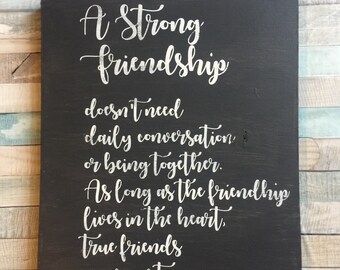 A Strong
friendship
doesn't need
daily conversation
or being together.
As long as the friendhip
lives in the heart,
true friends